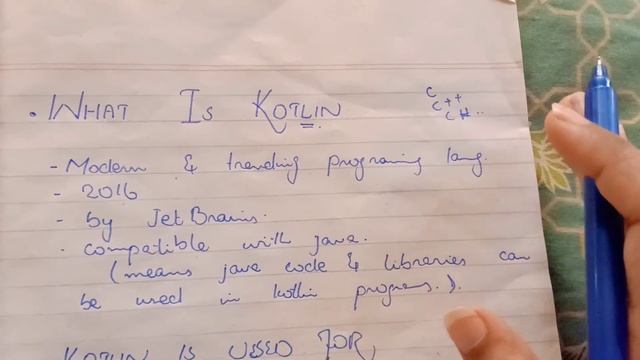 . WHAT IS KOTLIN
C
C++
C#..
- Modern & trending programing lang.
- 2016
- by JetBrains.
. compatible with java.
(means java code & libraries can
be used in kotlin programs.).
KOTLIN IS USED FOR,